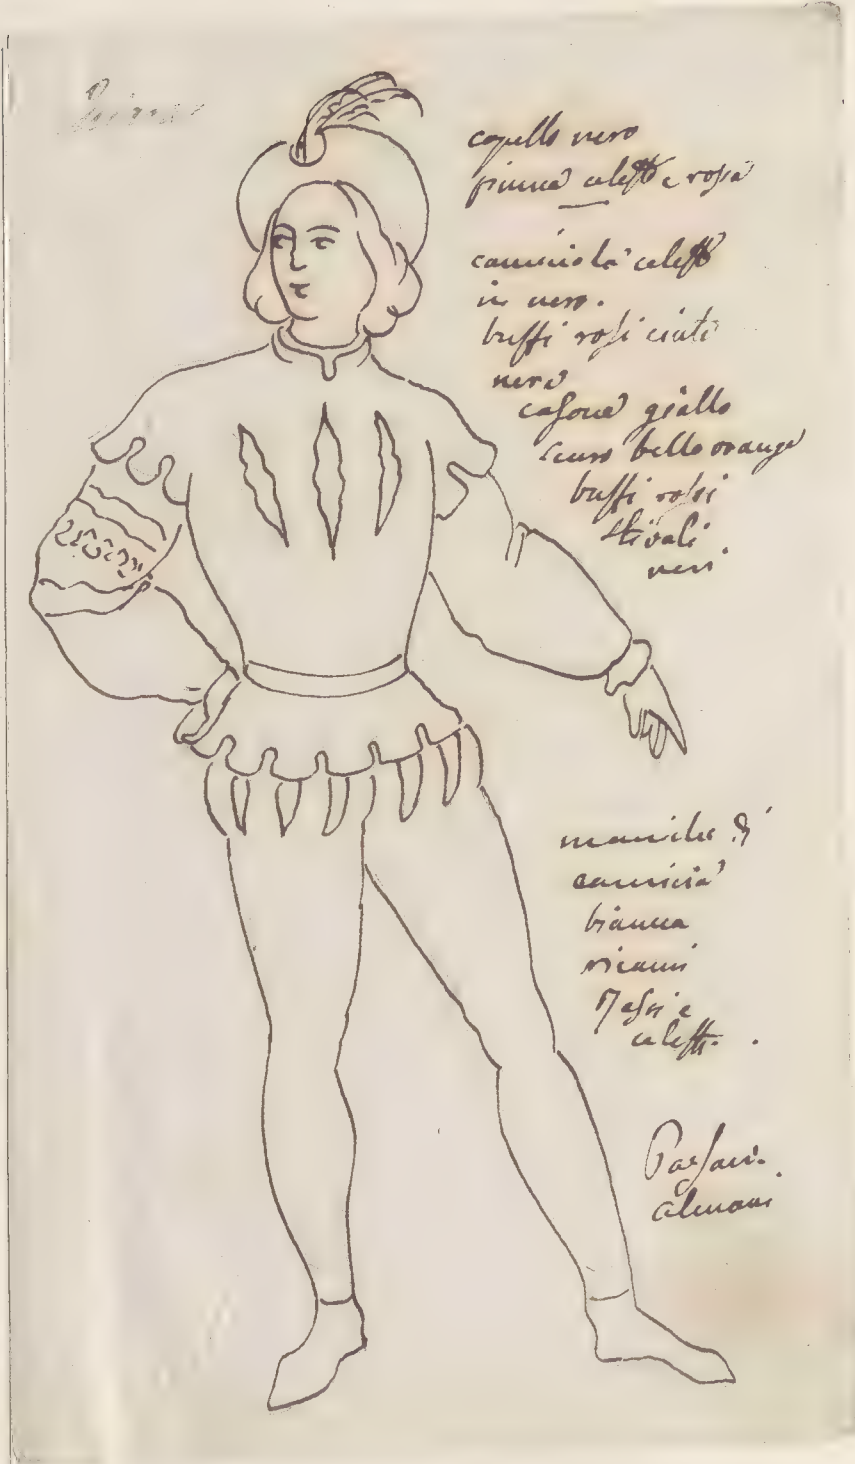 capello nero
piuma celeste e rossa
camiciola celeste
in nero.
buffi rossi
nero
giallo
scuro bello orange
buffi rossi
stivali
neri
maniche di
camicia
bianca
ricami
Rossi e
celesti.
Paesani
alemani